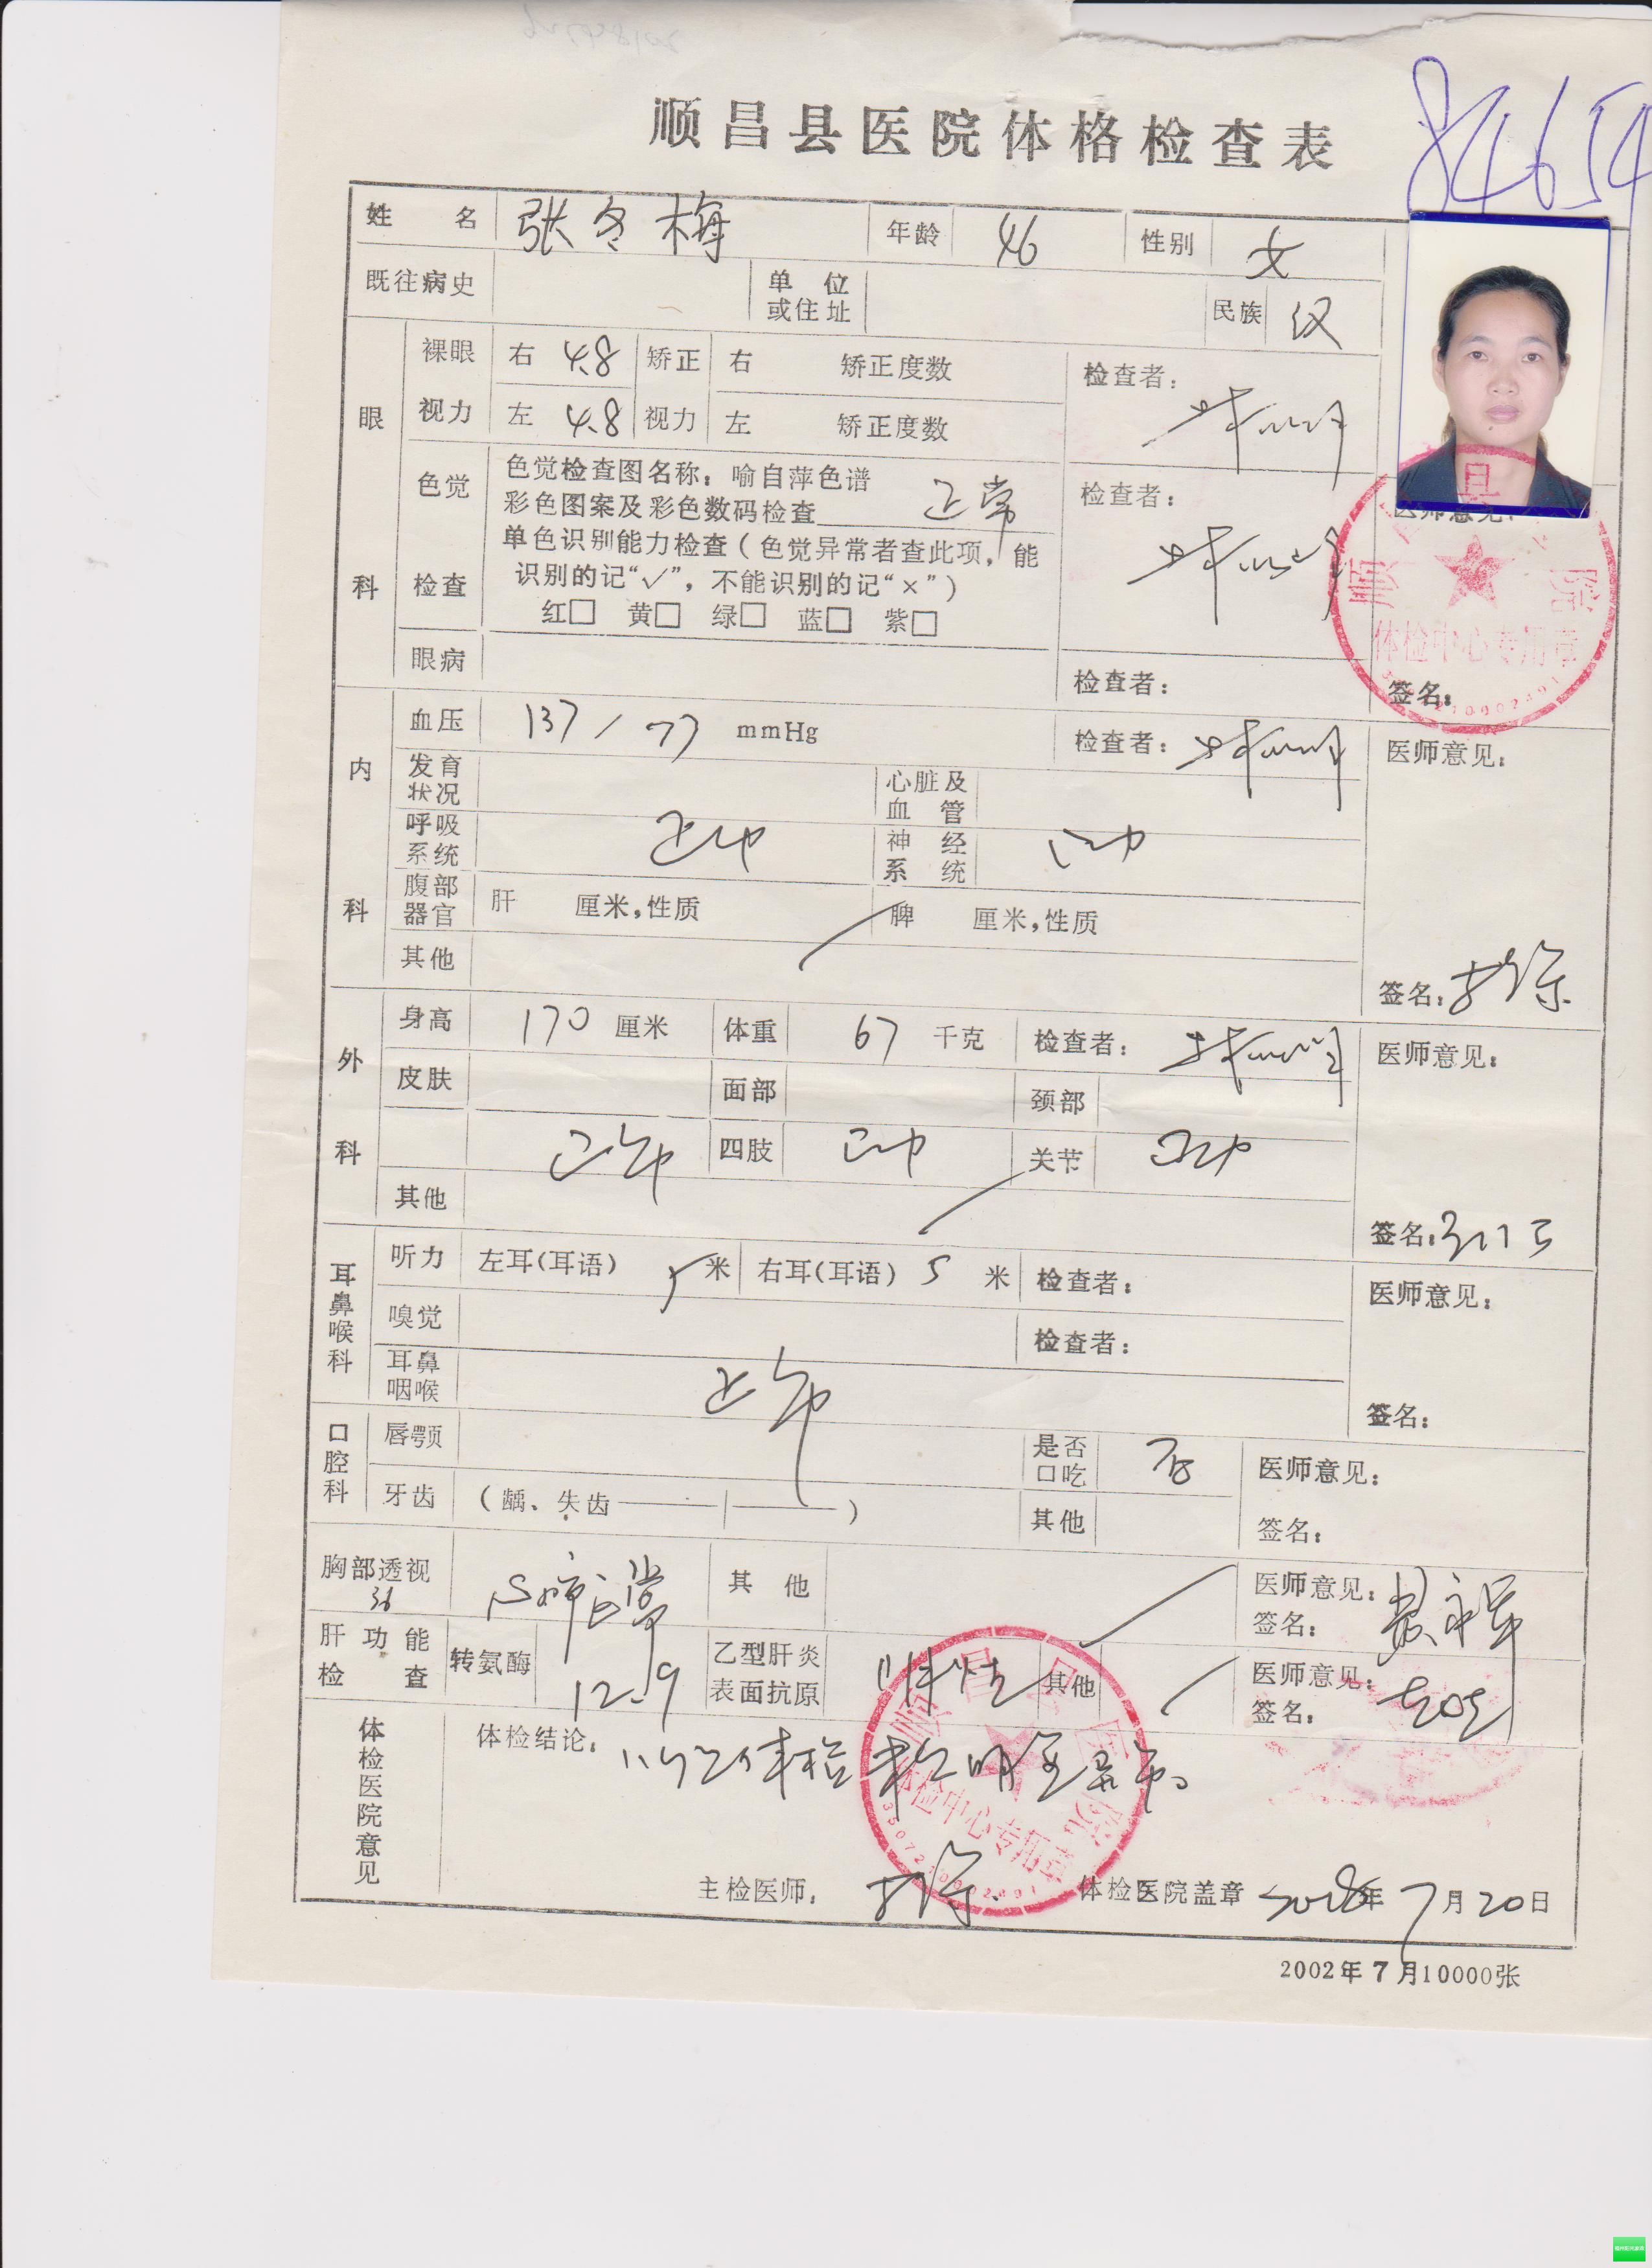 84654
顺昌县医院体格检查表
姓名 张冬梅 年龄 46 性别 女
既往病史 单位或住址 民族 汉
眼科 裸眼视力 右 4.8 矫正视力 右 矫正度数 检查者:
左 4.8 左 矫正度数
色觉检查 色觉检查图名称:喻自萍色谱 检查者: 医师意见:
彩色图案及彩色数码检查 正常
单色识别能力检查(色觉异常者查此项,能
识别的记“√”,不能识别的记“×”)
红□ 黄□ 绿□ 蓝□ 紫□
眼病 检查者: 签名:
体检中心专用章
内科 血压 137/77 mmHg 检查者: 医师意见:
发育状况 心脏及血管
呼吸系统 正常 神经系统 正常
腹部器官 肝 厘米,性质 脾 厘米,性质
其他 签名:
外科 身高 170 厘米 体重 67 千克 检查者: 医师意见:
皮肤 面部 颈部
正常 四肢 正常 关节 正常
其他 签名:
耳鼻喉科 听力 左耳(耳语) 5 米 右耳(耳语) 5 米 检查者: 医师意见:
嗅觉 检查者:
耳鼻咽喉 正常 签名:
口腔科 唇颚 是否口吃 否 医师意见:
牙齿 (龋、失齿 ) 其他 签名:
胸部透视 其他 医师意见:
签名:
肝功能检查 转氨酶 12.9 乙型肝炎表面抗原 阴性 其他 医师意见:
签名:
体检医院意见 体检结论: 体检未见明显异常。
顺昌县医院
体检中心专用章
主检医师: 体检医院盖章 2018年7月20日
2002年7月10000张